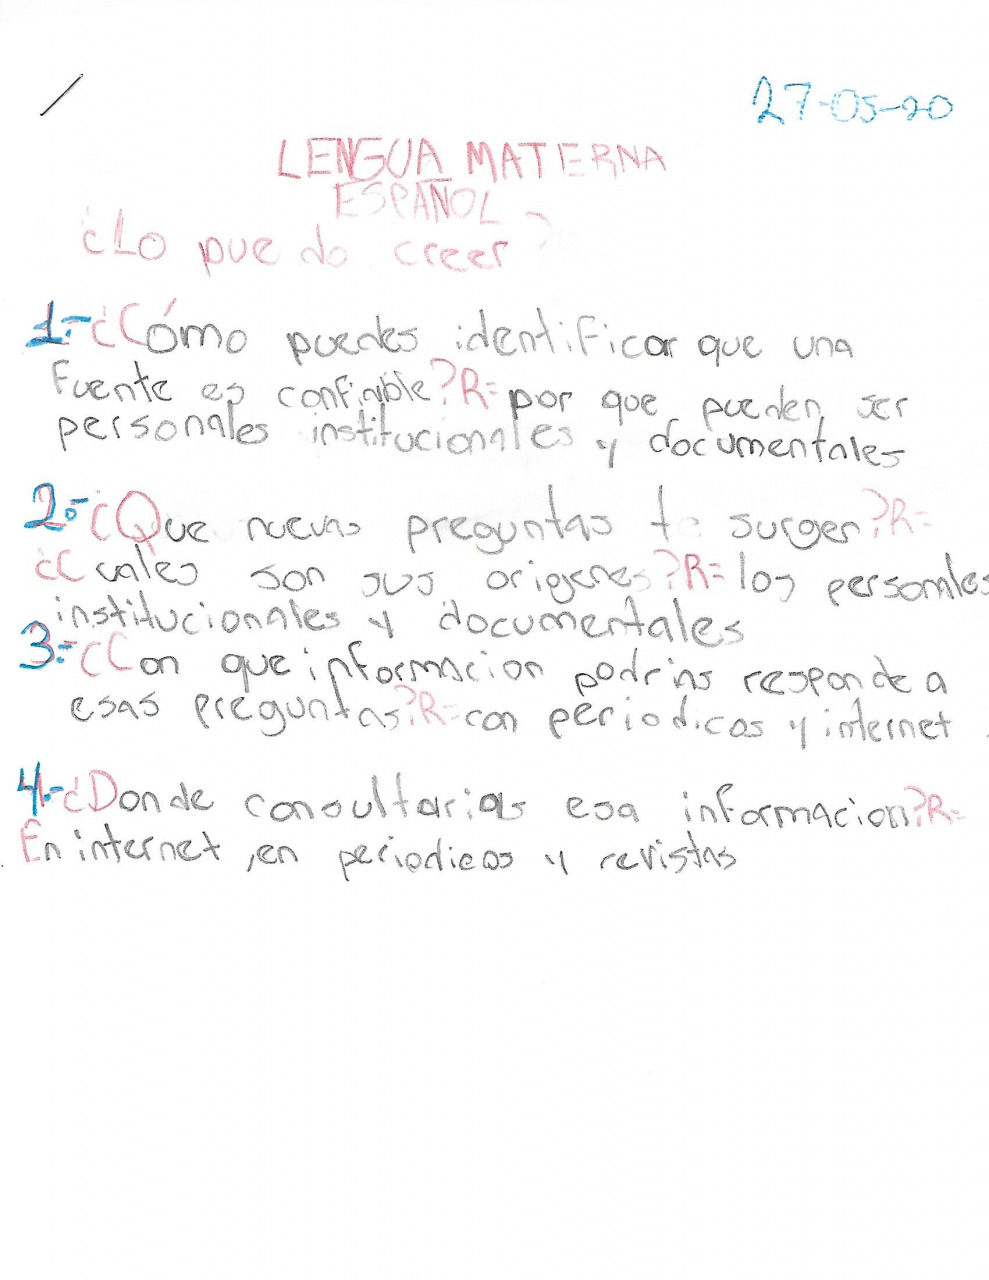 27-05-20
LENGUA MATERNA
ESPAÑOL
¿Lo puedo creer?
1.-¿Cómo puedes identificar que una
fuente es confiable?R= por que pueden ser
personales institucionales y documentales
2.-¿Que nuevas preguntas te surgen?R=
¿Cuales son sus origenes?R= los personales
institucionales y documentales
3.-¿Con que informacion podrias responde a
esas preguntas?R=con periodicos y internet
4.-¿Donde consultarias esa informacion?R=
En internet ,en periodicos y revistas